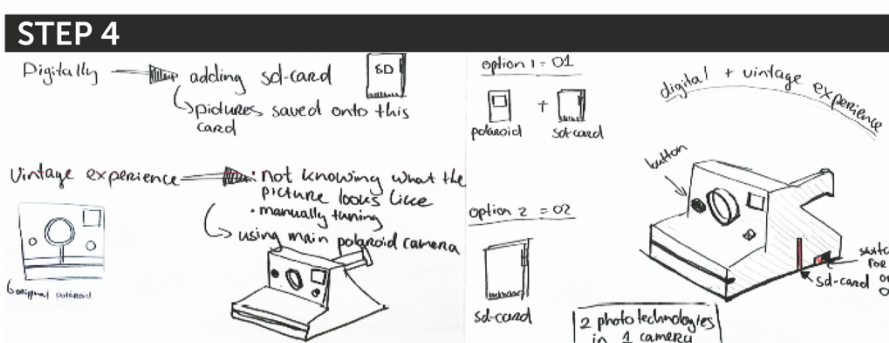 STEP 4
Digitally
adding sd-card
SD
pictures saved onto this
card
Vintage experience
• not knowing what the
picture looks like
• manually tuning
using main polaroid camera
original polaroid
option 1 = 01
polaroid + sd-card
option 2 = 02
sd-card
digital + vintage experience
button
sd-card
for
2 photo technologies
in 1 camera